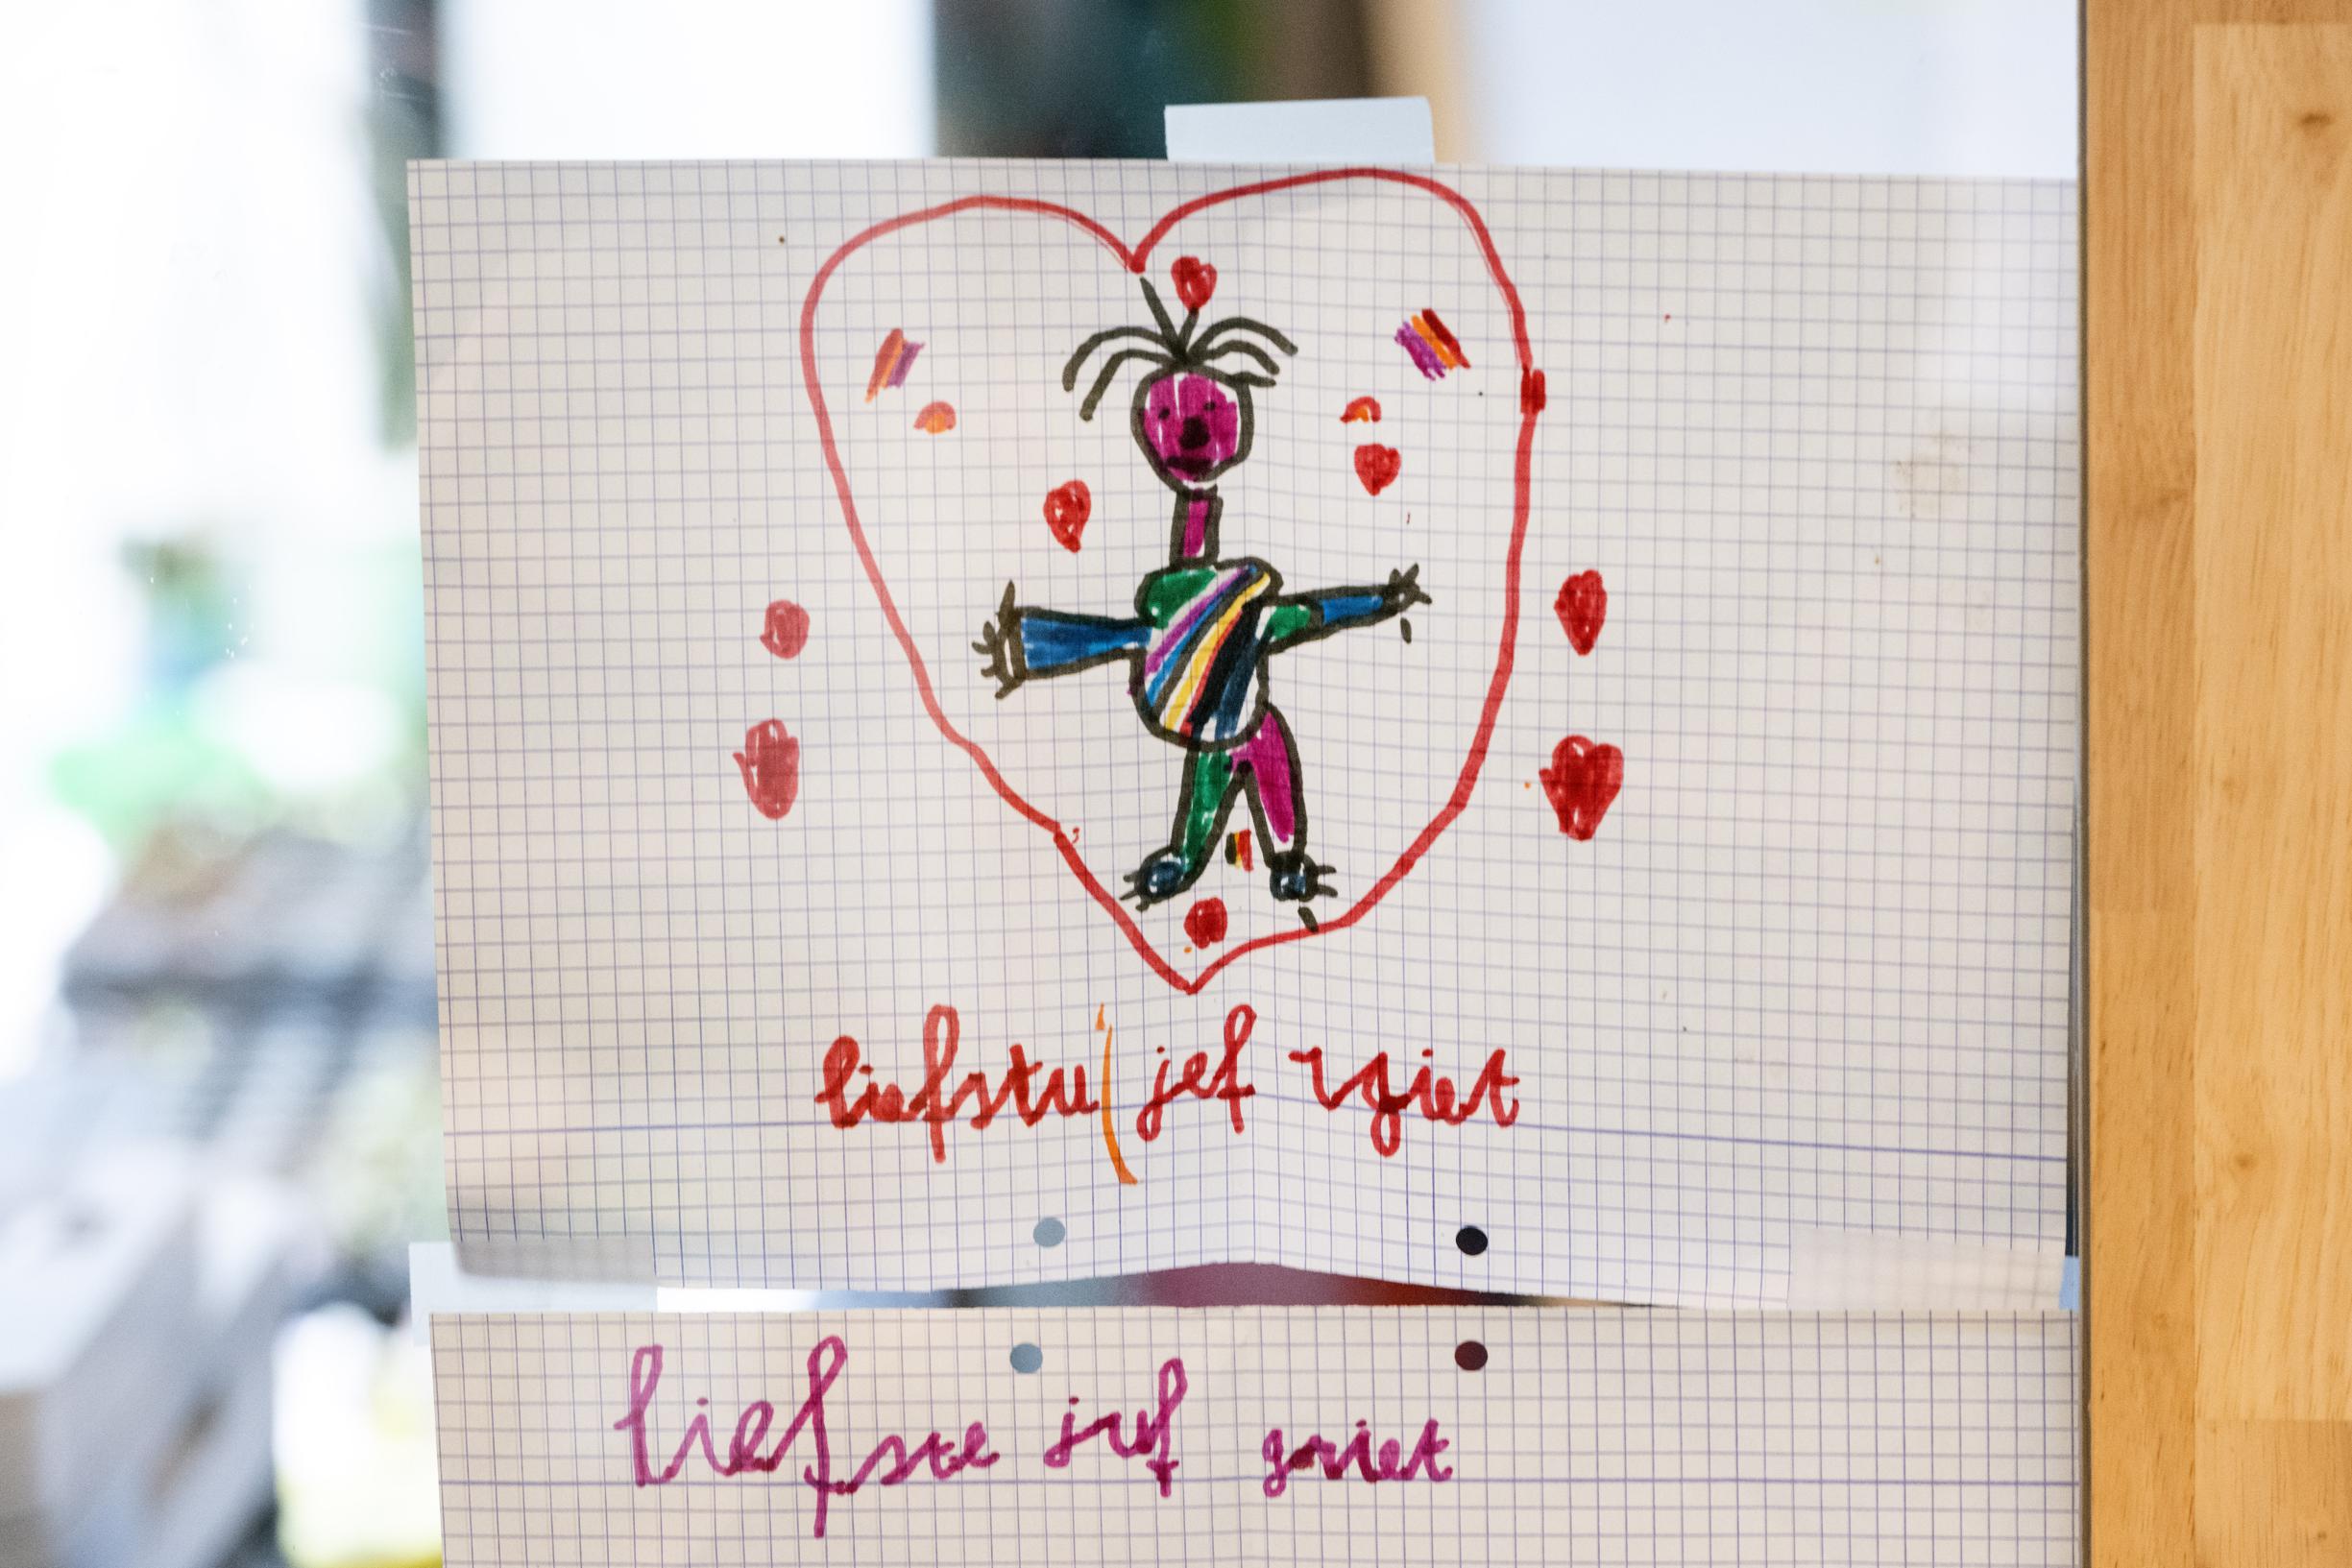 liefstu jef rgiet
liefste juf griet